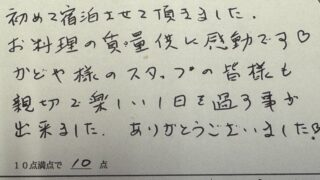 初めて宿泊させて頂きました。
お料理の質・量供に感動です♡
かどや様のスタッフの皆様も
親切で楽しい1日を過す事が
出来ました. ありがとうございました♡
10点満点で 10 点